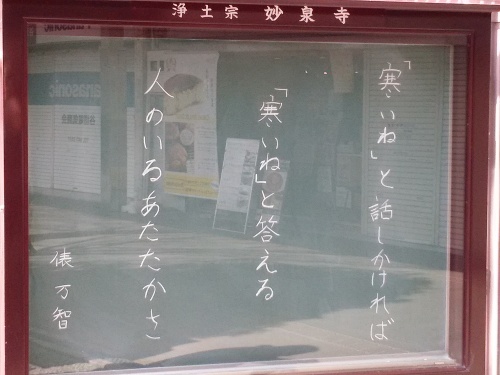 浄土宗 妙泉寺
「寒いね」と話しかければ
「寒いね」と答える
人のいるあたたかさ
俵万智
Panasonic